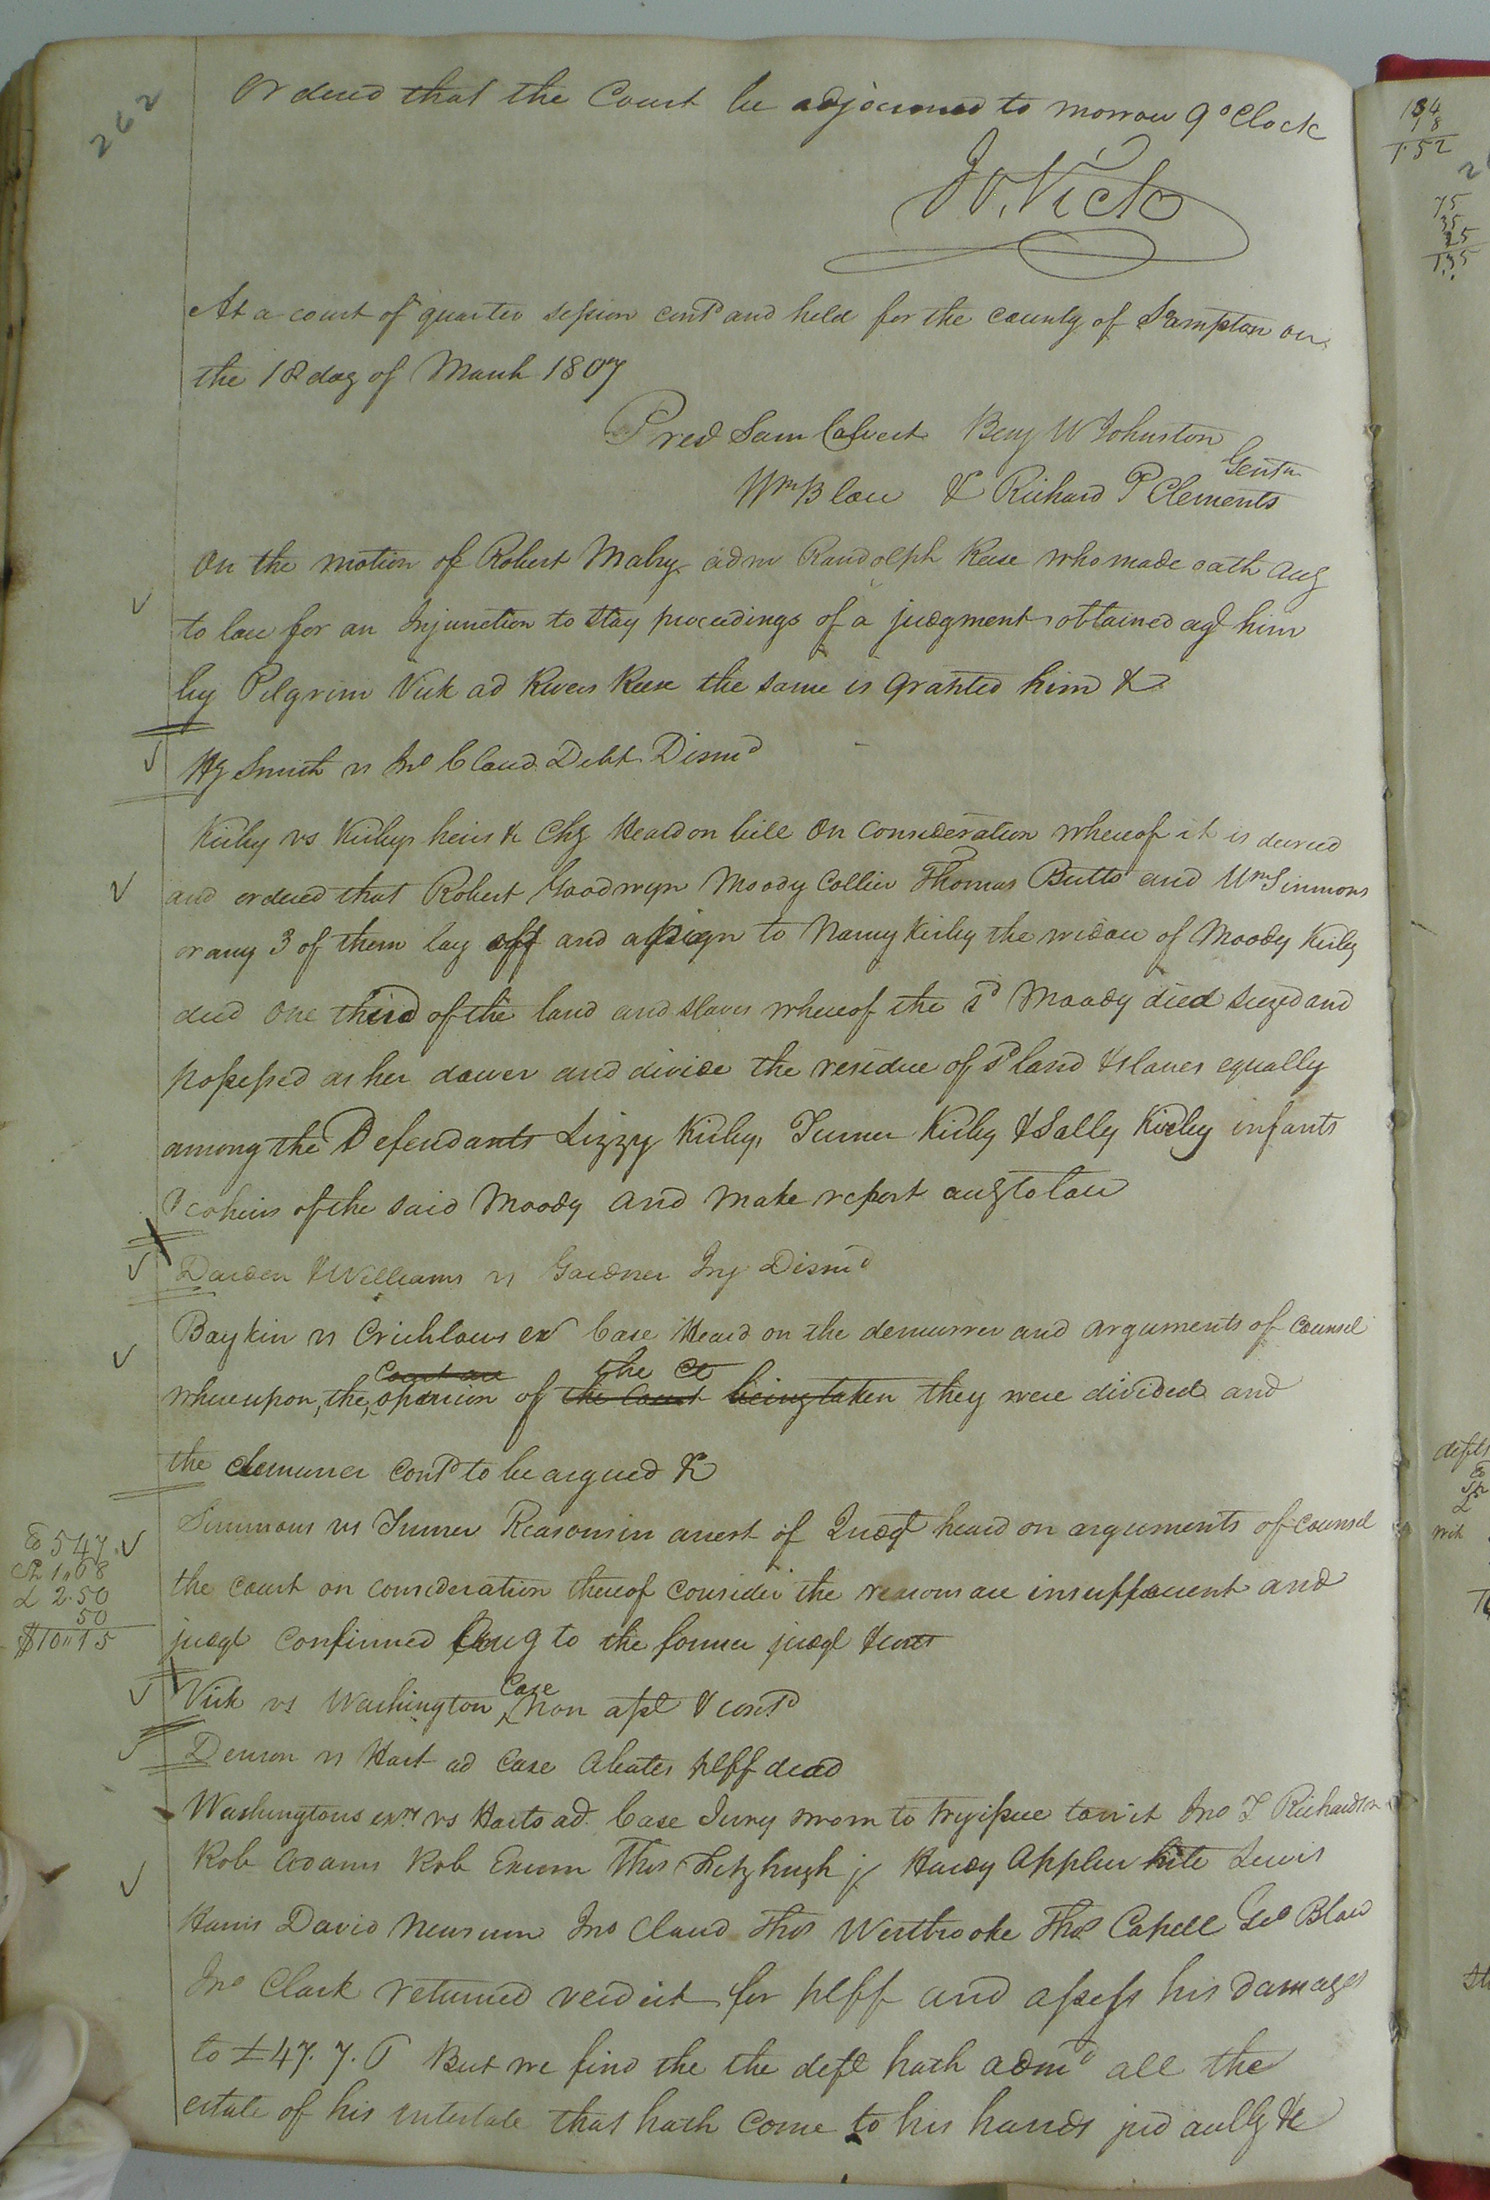 262
Ordered that the Court be adjourned to morrow 9 oClock
Jo. Vick
At a court of quarter session contd and held for the county of Sampton on
the 18 day of March 1807
Presd Sam Calvert Benj W Johnston
Gentn
Wm Blow & Richard P Clements
On the motion of Robert Mabry adm Randolph Reese who made oath accg
to law for an Injunction to stay proceedings of a judgment obtained agt him
by Pilgrim Vick ad Rivers Reese the same is granted him &c
Hy Smith vs Jno Claud Debt Dismd
Kirby vs Kirbys heirs In Chy Heard on bill On consideration whereof it is decreed
and ordered that Robert Goodwyn Moody Collier Thomas Butts and Wm Simmons
or any 3 of them lay off and assign to Nancy Kirby the widow of Moody Kirby
decd One third of the land and slaves whereof the sd Moody died seized and
possessed as her dower and divide the residue of sd land & slaves equally
among the Defendants Lizzy Kirby, Turner Kirby & Sally Kirby infants
& coheirs of the said Moody and make report accg to law
Darden & Williams vs Gardner Inj Dismd
Baykin vs Crichlows exr Case Heard on the demurrer and arguments of counsel
Court are the Ct
whereupon, the opinion of the Court being taken they were divided and
the demurrer contd to be argued &c
Simmons vs Turner Reasons in arrest of Judgt heard on arguments of counsel
the court on consideration thereof consider the reasons are insufficient and
judgt confirmed accg to the former judgt & costs
547
1.08
2.50
50
$10.15
Case
Vick vs Washington Non asst & contd
Denson vs Hart ad Case Abates plff dead
Washingtons exrs vs Harts ad. Case Jury sworn to try issue towit Jno T Richardson
Rob Adams Rob Exum Thos Fitzhugh jr Hardy Applewhite Lewis
Harris David Newsum Jno Claud Thos Westbrooke Thos Capell Geo Blow
Jno Clark returned verdict for plff and assess his damages
to £47.7.6 But we find the the deft hath admd all the
estate of his intestate that hath come to his hands jud accg &c
134
18
152
75
35
25
135